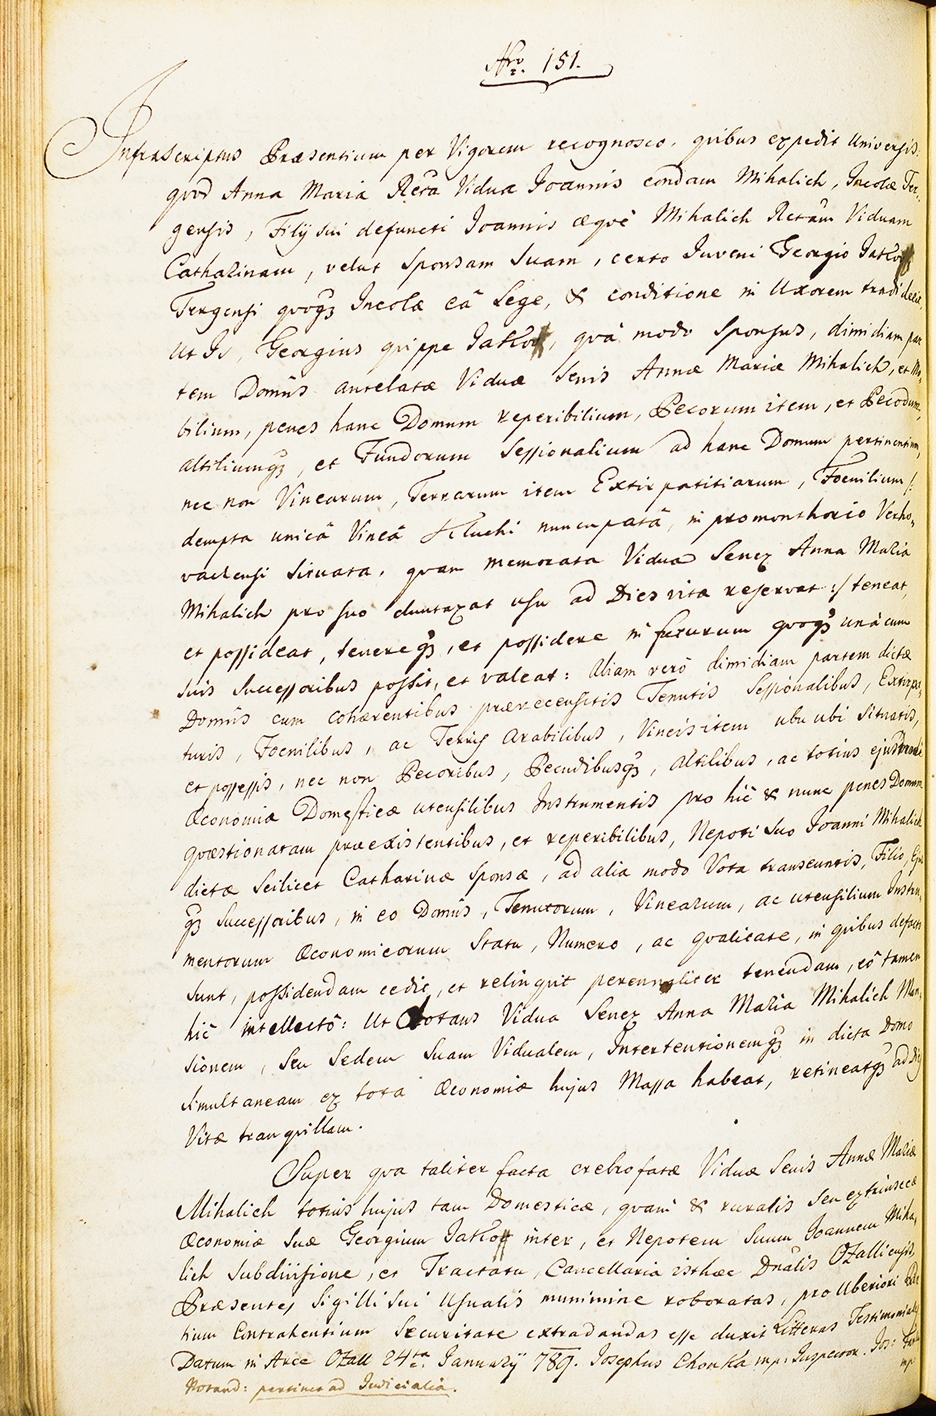 Nro. 151.
Infrascriptus Præsentium per Vigorem recognosco, quibus expedit Universis,
quod Anna Maria Rcta Vidua Joannis condam Mihalich, Incolæ Ter-
gensis, Filij sui defuncti Joannis æqve Mihalich Rctam Viduam
Catharinam, velut Sponsam Suam, certo Juveni Georgio
Tergensi qvoqz Incolæ eâ Lege, & conditione in Uxorem
Ut Is, Georgius quippe qvâ modo Sponsus, dimidiam par
tem Domûs antelatæ Viduæ Senis Annæ Mariæ Mihalich, et Mo-
bilium, penes hanc Domum reperibilium, Pecorum item, et Pecudum,
altiliumqz, et Fundorum Sessionalium ad hanc Domum pertinentium,
nec non Vinearum, Terrarum item Extirpatitiarum, Foenilium /:
dempta unicâ Vineâ Hluchi nuncupatâ, in promonthorio
situata, quam memorata Vidua Senex Anna Maria
Mihalich pro suo duntaxat usu ad Dies vitæ reservat :/ teneat,
et possideat, tenereqz, et possidere in futurum qvoqz unà cum
suis Successoribus possit, et valeat: Aliam verò dimidiam partem dictæ
Domûs cum cohærentibus prærecensitis Tenutis Sessionalibus, Extirpa-
turis, Foenilibus, ac Terris Arabilibus, Vineis item ubi ubi situatis,
et possessis, nec non Pecoribus, Pecudibusqz, Altilibus, ac totius
Œconomiæ Domesticæ utensilibus Instrumentis pro hîc & nunc penes Domum
qvæstionatam præexistentibus, et reperibilibus, Nepoti Suo Joanni Mihalich
dictæ Scilicet Catharinæ Sponsæ, ad alia modo Vota transeuntis, Filio,
qz Successoribus, in eo Domûs, Tenutorum, Vinearum, ac utensilium Instru-
mentorum Œconomicorum Statu, Numero, ac qvalitate, in quibus defacto
sunt, possidendam cedit, et relinquit perennaliter tenendam, eô tamen
hîc intellectô: Ut Vidua Senex Anna Maria Mihalich Man-
sionem, Seu Sedem Suam Vidualem, Intertentionemqz in dicta Domo
simultaneam ex tota Œconomiæ hujus Massa habeat, retineatqz ad Dies
Vitæ tranquillam.
Super qva taliter facta crebrofatæ Viduæ Senis Annæ Mariæ
Mihalich totius hujus tam Domesticæ, qvam & ruralis Seu extrinsecæ
Œconomiæ Suæ Georgium inter, et Nepotem Suum Joannem Miha-
lich Subdivisione, et Tractatu, Cancellaria isthæc Dnalis Ozalliensis,
Præsentes Sigilli Sui Usualis munimine roboratas, pro Uberiori Par
tium Contrahentium Securitate extradandas esse duxit Litteras Testimoniales
Datum in Arce Ozall 24ta Januarij 789. Josephus Chonka mp: Inspector. Jos:
mp:
Notand: pertinet ad Judicialia.